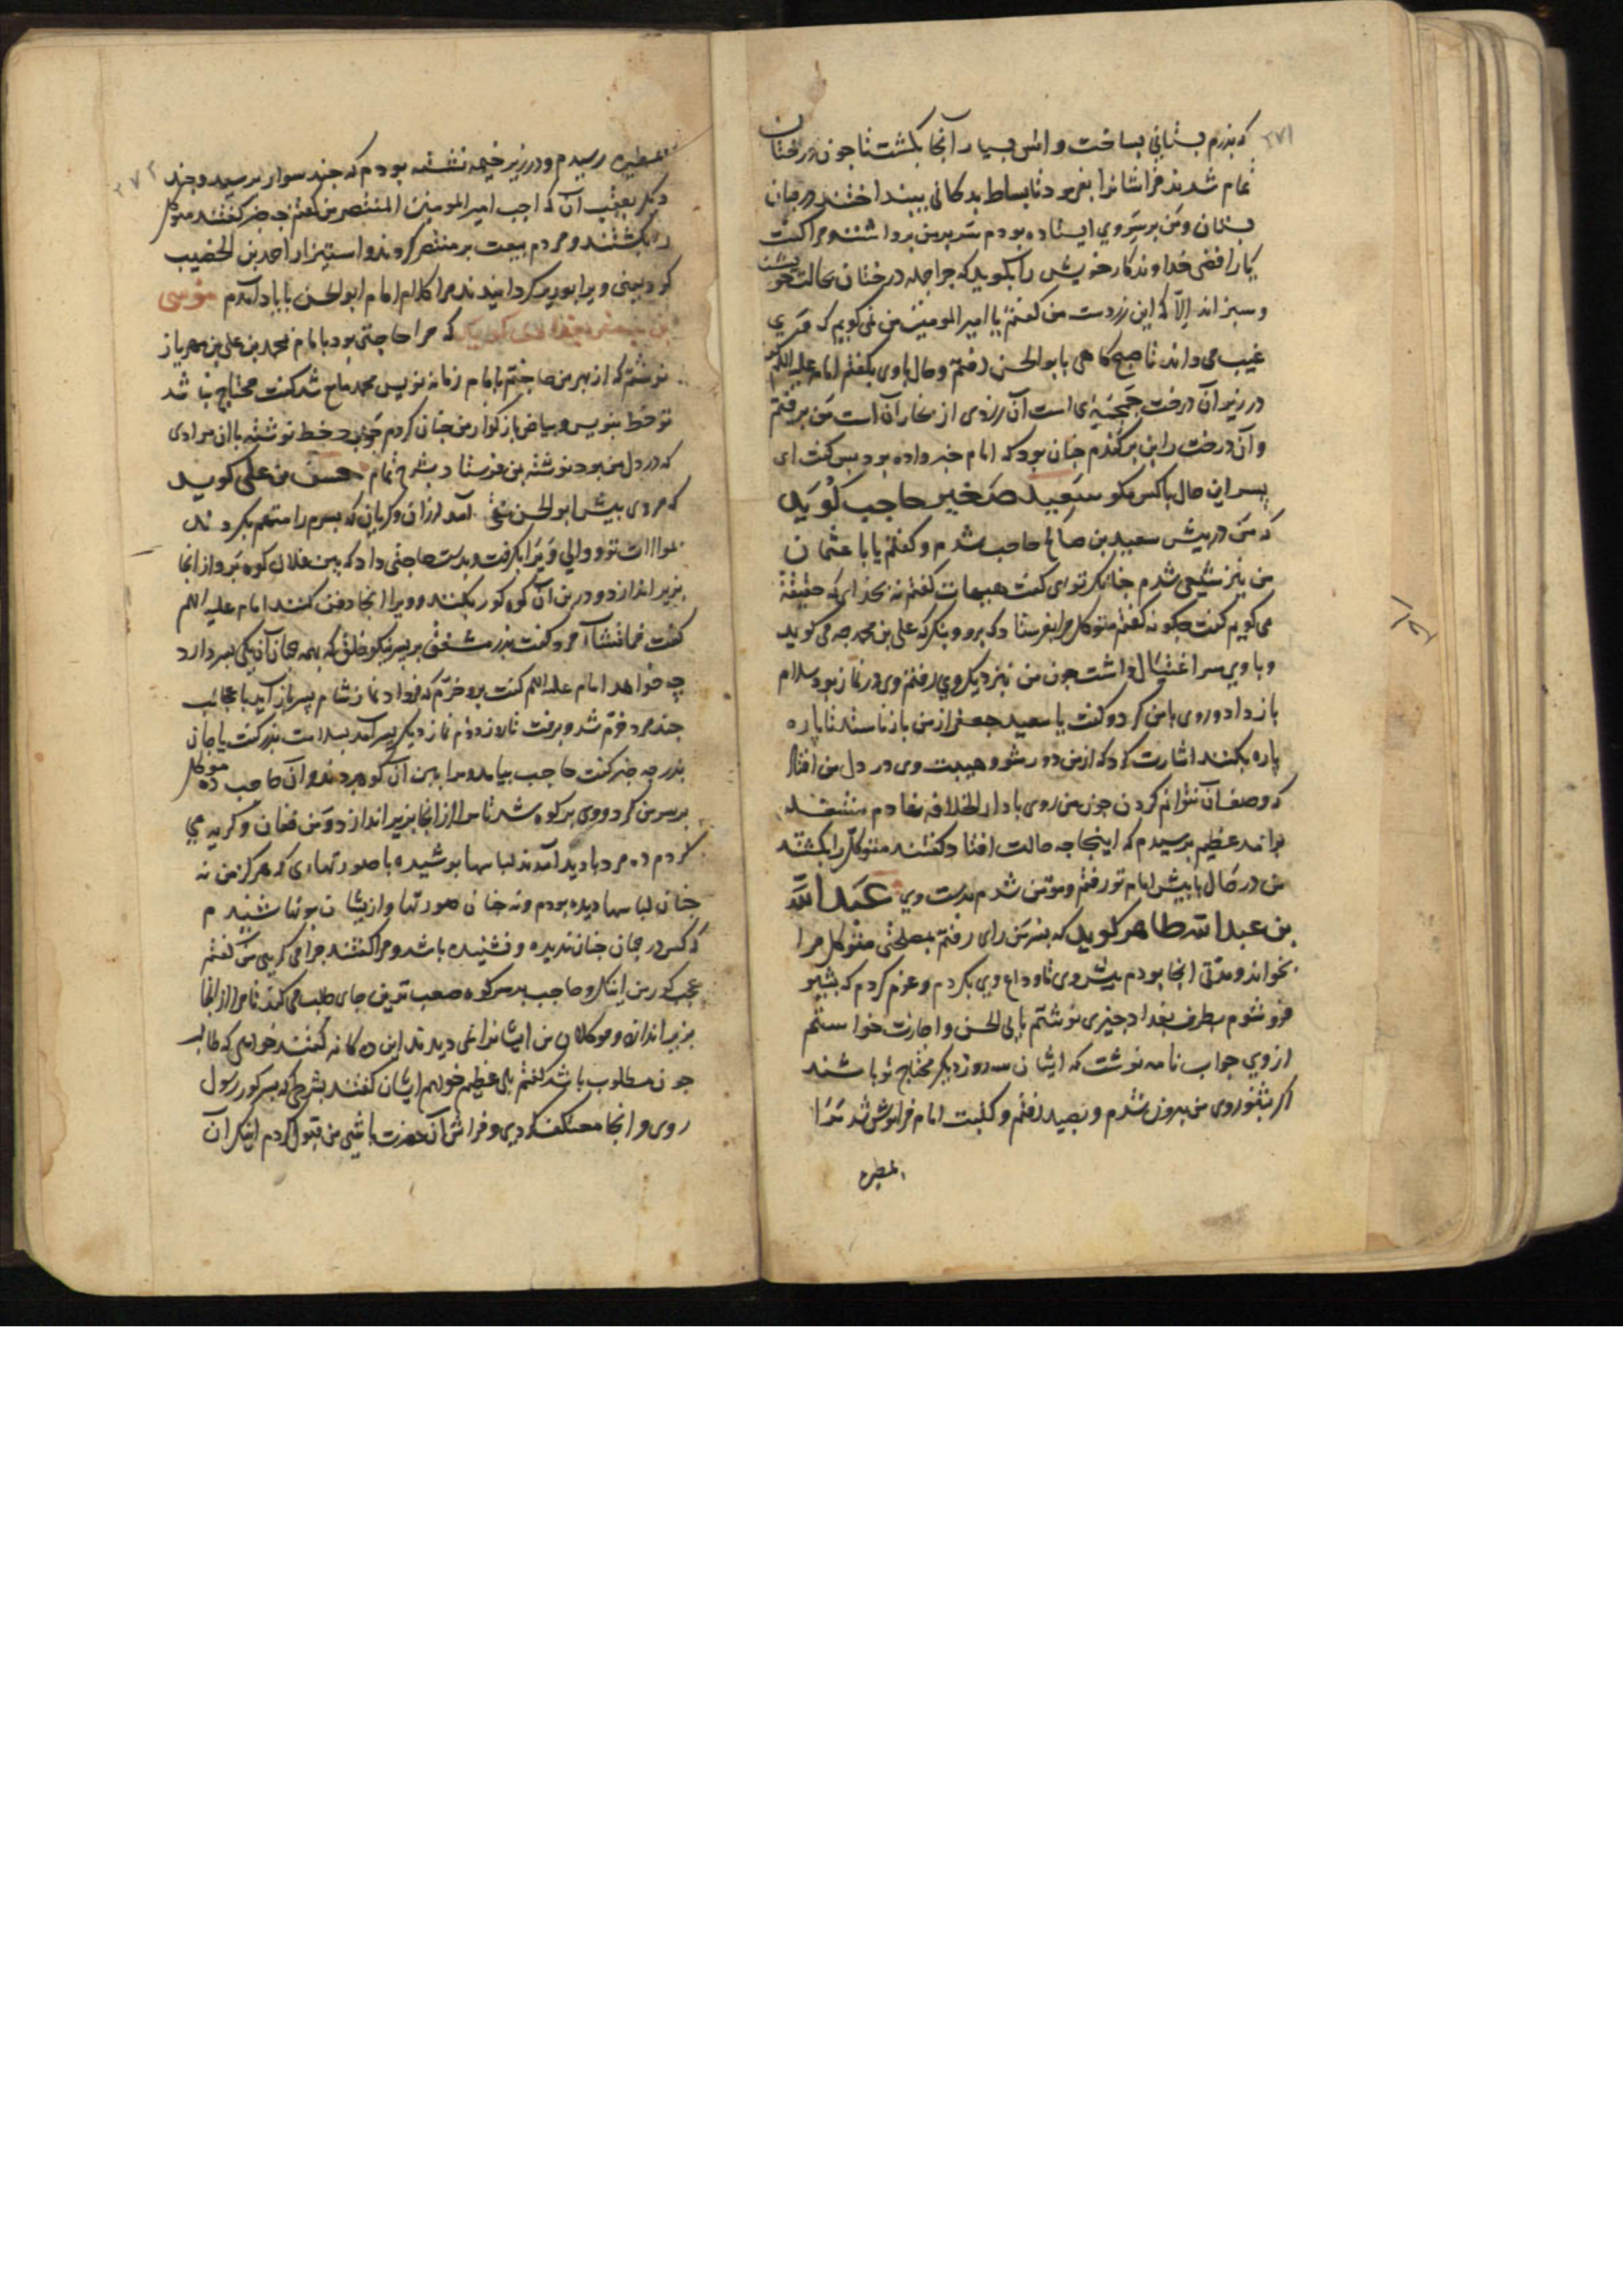 ۳۷۱
که پدرم بستانی بساخت و اس بسیار آنجا بکشت تا چون درختان
تمام شدند فراشانرا بفرمود تا بساط بدکانی بینداختند در میان
بستان و من بر سر وی ایستاده بودم سر بر من برداشت و مرا گفت
یا رافضی خداوندکار خویش را بگوید که چرا جمله درختان بحالت خو یشند
و سبز اند الا که این زردست من گفتم یا امیر المومنین من نمی کویم که وی
غیب می داند تا صبح کاهی با بو الحسن رفتم و حال با وی بکفتم امام علیه السلم
در زیر آن درخت جمجمه ای است آن زردی از بخار آن است من برفتم
و آن درخت را بن بر کندم چنان بود که امام خبر داده بود پس گفت ای
پسر این حال با کس مکو سعید صغیر حاجب کوید
که من در پیش سعید بن صالح حاجب شدم و گفتم یا با عثمان
من نیز شیعی شدم چنانکه توی گفت هیهات گفتم نه بخدای که حقیقة
می کویم گفت چکونه گفتم متوکل مرا بفرستاد که برو و بنکر که علی بن محمد چه می کوید
و با وی سر اغتیال داشت چون من نزدیک وی رفتم وی در نماز بود سلام
باز داد و روی با من کرد و گفت یا سعید جعفر از من باز نا ستد تا پاره
پاره بکنند اشارت کرد که از من دور شو و هیبت وی در دل من افتاد
که وصف آن نتوانم کردن چون من روی با دار الخلافه نهادم مشغله
بر آمد عظیم پرسیدم که اینجا چه حالت افتاد گفتند متوکل را بکشتند
من در حال با پیش امام تو رفتم و مومن شدم بدست وی عبد الله
بن عبد الله طاهر کوید که بسر من رای رفتم بمصلحتی متوکل مرا
بخواند و مدتی آنجا بودم پیش وی تا وداع وی بکردم و عزم کردم که بشب
فرو شوم بطرف بغداد چیزی نوشتم بابی الحسن و اجازت خواستم
از وی جواب نامه نوشت که ایشان سه روز دیکر محتاج تو باشند
اکر بتفو روی من بیرون شدم و بصید رفتم و کتبت امام فراموش شد مرا
بمطیره
۳۷۲
بمطیره رسیدم و در زیر خیمه نشسته بودم که چند سوار برسید و چند
دیکر بعقب آن که اجب امیر المومنین المنتصر من گفتم چه خبر گفتند متوکل
را بکشتند و مردم بیعت بر منتصر کردند و استیزار احمد بن الخضیب
کرد یعنی ویرا بوزیر کردانیدند مرا کلام امام ابو الحسن با یاد آمدم موسی
بن جعفر بغدادی کوید که مرا حاجتی بود با امام محمد بن علی بن مهریار
نوشتم که از بهر من حاجتم بامام زمانه نویس محمد مانع شد گفت محتاج نباشد
تو خط بنویس و بیاض بازکذار من چنان کردم جواب خط نوشته با آن مرادی
که در دل من بود نوشته بمن فرستاد بشرح تمام حسن بن علی کوید
که مردی پیش ابو الحسن آمد لرزان و کریان که پسرم را متهم بکردند
بموالات تو و والی ویرا بکرفت و بدست حاجبی داد که بین فلان کوه برو از آنجا
بزیر اندازد و در بن آن کوه کور بکنند و ویرا آنجا دفن کنند امام علیه السلم
گفت فما تشاء مرد گفت پدر مشفق بر پسر نیکو خلق که بهمه جهان آن یکی پسر دارد
چه خواهد امام علیه السلم گفت برو خرم که فردا نماز شام پسر باز آید با عجائب
چند مرد خرم شد و برفت تا روز دوم نماز دیکر پسر آمد بسلامت پدر گفت یا جان
پدر چه خبر گفت حاجب بیامد و مرا ببن آن کوه بردند و آن حاجب ده موکل
بر سر من کرد و وی بر کوه شد تا مرا از آنجا بزیر اندازد و من فغان و کریه می
کردم ده مرد با دید آمدند لباسها پوشیده با صورتهای که هرکز من نه
چنان لباسها دیده بودم و نه چنان صورتها و ازیشان بویها شنیدم
که کس در جهان چنان ندیده و نشنیده باشد و مرا گفتند چرا می کریی من گفتم
عجب کور من اینک و حاجب بر سر کوه صعب ترین جای طلب می کند تا مرا از آنجا
بزیر اندازد و موکلان من ایشانرا نمی دیدند این ده کانه گفتند خواهی که طالب
چون مطلوب باشد گفتم بلی عظیم خواهم ایشان گفتند بشرطی که بسر کور رسول
روی و آنجا معتکف کردی و فراش آن حضرت باشی من قبول کردم اینک آن